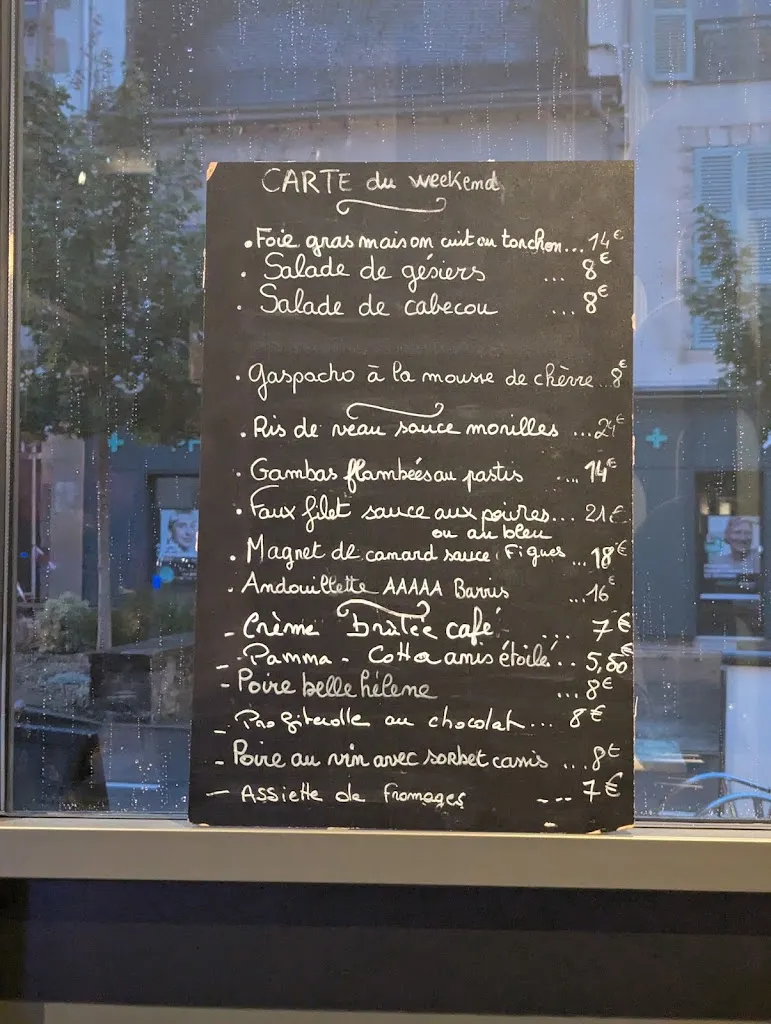 CARTE du weekend
• Foie gras maison cuit au torchon... 14€
• Salade de gésiers ... 8€
• Salade de cabecou ... 8€
• Gaspacho à la mousse de chèvre.. 8€
• Ris de veau sauce morilles ...24€
• Gambas flambées au pastis .... 14€
• Faux filet sauce aux poivres... 21€
ou au bleu
• Magret de canard sauce Figues ...18€
• Andouillette AAAAA Barrus ...16€
- Crème brulée café ... 7€
- Panna - Cotta anis étoilé.. 5,50€
- Poire belle hélene ...8€
- Profiterolle au chocolat... 8€
- Poire au vin avec sorbet cassis ...8€
- Assiette de fromages --- 7€